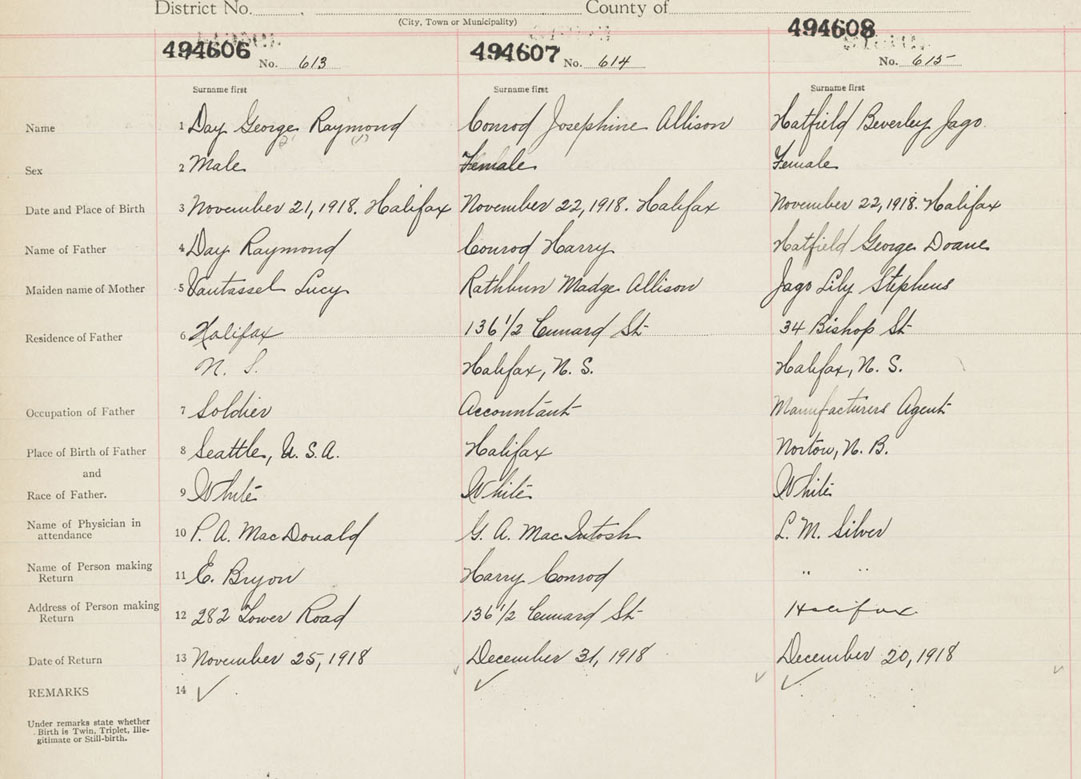 District No. County of
(City, Town or Municipality)
494606 494607 494608
No. 613 No. 614 No. 615
Surname first Surname first Surname first
Name 1 Day George Raymond Conrod Josephine Allison Hatfield Beverley Jago
Sex 2 Male Female Female
Date and Place of Birth 3 November 21, 1918. Halifax November 22, 1918. Halifax November 22, 1918. Halifax
Name of Father 4 Day Raymond Conrod Harry Hatfield George Doane
Maiden name of Mother 5 Vantassel Lucy Rathbun Madge Allison Jago Lily Stephens
Residence of Father 6 Halifax 136 1/2 Cunard St 34 Bishop St
N. S. Halifax, N. S. Halifax, N. S.
Occupation of Father 7 Soldier Accountant Manufacturers Agent
Place of Birth of Father 8 Seattle, U. S. A. Halifax Norton, N. B.
and
Race of Father. 9 White White White
Name of Physician in attendance 10 P. A. MacDonald G. A. MacIntosh L. M. Silver
Name of Person making Return 11 E. Bryon Harry Conrod " "
Address of Person making Return 12 282 Lower Road 136 1/2 Cunard St Halifax
Date of Return 13 November 25, 1918 December 31, 1918 December 20, 1918
REMARKS 14 ✓ ✓ ✓
Under remarks state whether
Birth is Twin, Triplet, Ille-
gitimate or Still-birth.